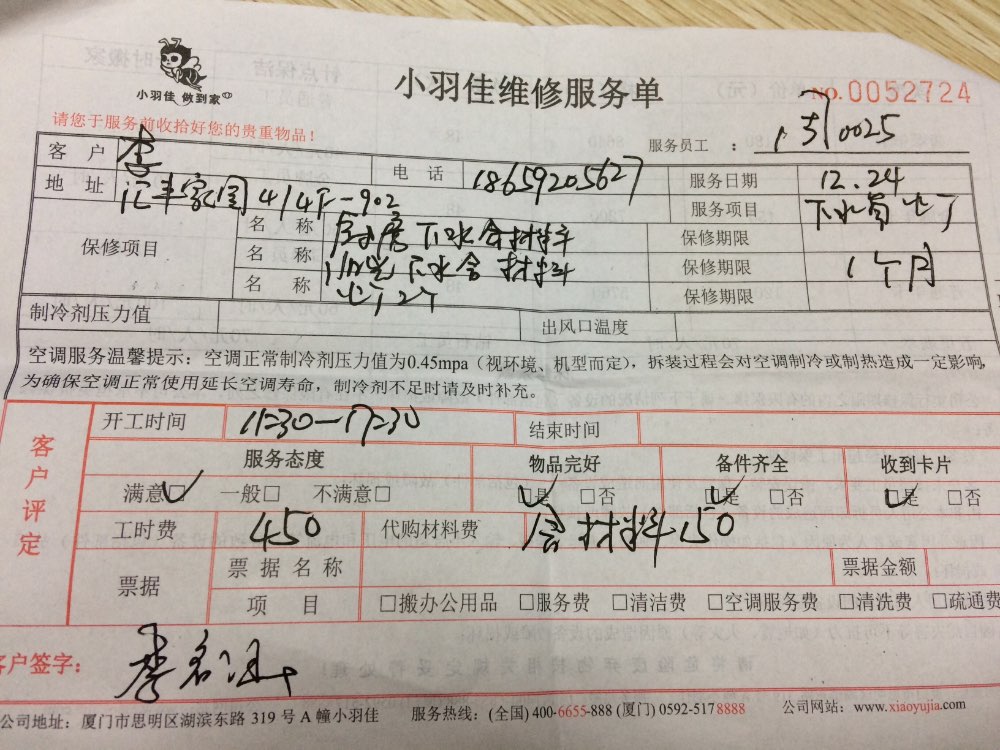 小羽佳 做到家
小羽佳维修服务单
NO.0052724
请您于服务前收拾好您的贵重物品！
服务员工 ： 0025
客户 李 电话 18659205627 服务日期 12.24
地址 汇丰家园414F-902 服务项目 下水管
保修项目 名称 下水含材料 保修期限
名称 下水含材料 保修期限 1个月
名称 保修期限
制冷剂压力值 出风口温度
空调服务温馨提示：空调正常制冷剂压力值为0.45mpa（视环境、机型而定），拆装过程会对空调制冷或制热造成一定影响，
为确保空调正常使用延长空调寿命，制冷剂不足时请及时补充。
客户评定
开工时间 11:30—17:30 结束时间
服务态度 物品完好 备件齐全 收到卡片
满意☑ 一般□ 不满意□ ☑是 □否 ☑是 □否 ☑是 □否
工时费 450 代购材料费 含材料150
票据 票据名称 票据金额
项目 □搬办公用品 □服务费 □清洁费 □空调服务费 □清洗费 □疏通费
客户签字： 李
公司地址：厦门市思明区湖滨东路 319 号 A 幢小羽佳 服务热线：(全国) 400-6655-888 (厦门) 0592-5178888 公司网站：www.xiaoyujia.com